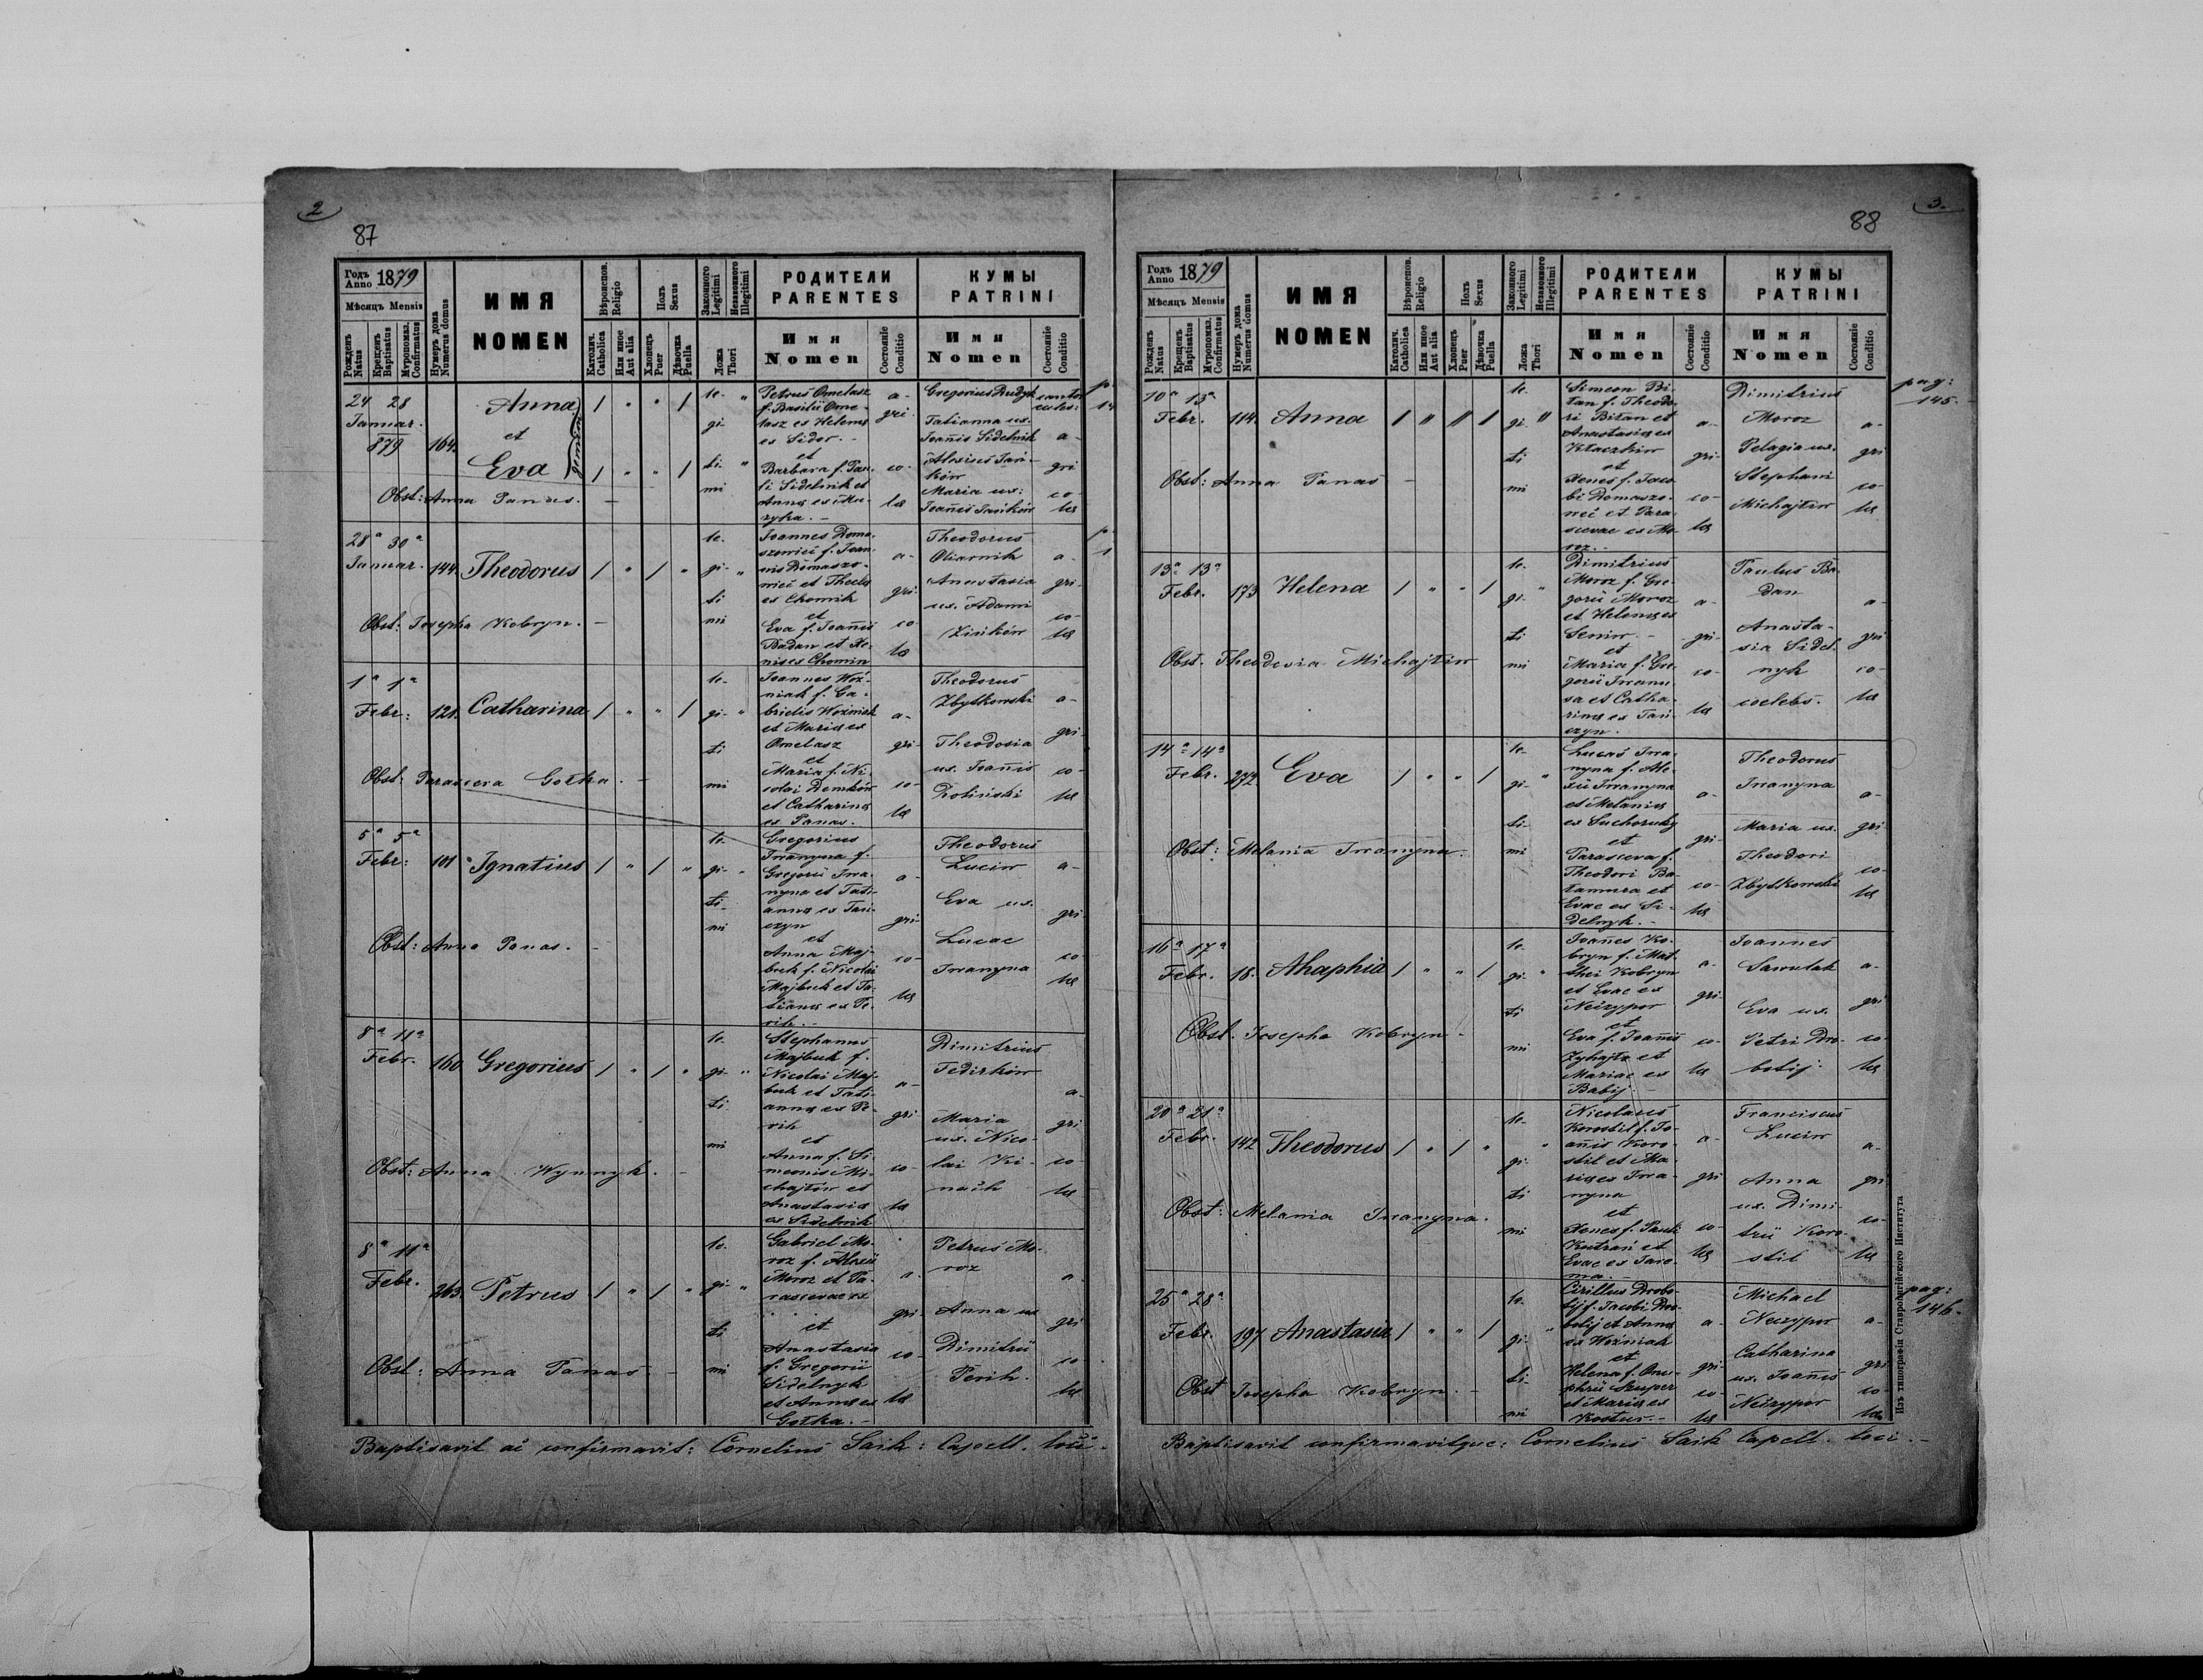 2
87
Годъ Anno 1879
Мѣсяцъ Mensis
Рожденъ Natus
Крещенъ Baptisatus
Мѵропомаз. Confirmatus
Нумеръ дома Numerus domus
ИМЯ
NOMEN
Вѣроиспов. Religio
Католич. Catholica
Или иное Aut alia
Полъ Sexus
Хлопецъ Puer
Дѣвочка Puella
Законного Legitimi
Незаконного Illegitimi
Ложа Thori
РОДИТЕЛИ
PARENTES
Имя
Nomen
Состояніе Conditio
КУМЫ
PATRINI
Имя
Nomen
Состояніе Conditio
24 28
Januar.
879
164.
Anna
et
Eva
gemellae
legitimi
Petrus Omelasz
f. Basilii Ome-
lasz et Helenae
ex Sidor. -
et
Barbara f. Pau-
li Sidelnik et
Annae ex Mu-
zyka. -
agricolae
Gregorius Rudyk cantor
Tatianna ux.
Joanis Sidelnik
Alexius Jań-
ków
Maria ux:
Joanis Jańków
agricolae
Obst: Anna Panas. -
28ª 30ª
Januar.
144.
Theodorus
legitimi
Joannes Doma-
szowieć f. Joan-
nis Domaszo-
wieć et Theclae
ex Chomik
et
Eva f. Joanis
Badan et Xe-
niae ex Chomin
agricolae
Theodorus
Oliarnik
Anastasia
ux. Adami
Zińków
agricolae
Obst: Josepha Kobryn. -
1ª 1ª
Febr:
121.
Catharina
legitimi
Joannes Woź-
niak f. Ga-
brielis Woźniak
et Mariae ex
Omelasz
et
Maria f. Ni-
colai Demków
et Catharinae
ex Panas.
agricolae
Theodorus
Zbytkowski
Theodosia
ux. Joanis
Zoliński
agricolae
Obst: Parasceva Gołka. -
5ª 5ª
Febr:
101
Ignatius
legitimi
Gregorius
Iwanyna f.
Gregorii Iwa-
nyna et Tati-
annae ex Jani-
czyn
et
Anna Maj-
buk f. Nicolai
Majbuk et Ta-
tianae ex Pe-
rih. -
agricolae
Theodorus
Luciw
Eva ux.
Lucae
Iwanyna
agricolae
Obst: Anna Panas. -
8ª 11ª
Febr.
160
Gregorius
legitimi
Stephanus
Majbuk f.
Nicolai Maj-
buk et Tati-
annae ex Pe-
rih
et
Anna f. Si-
meonis Mi-
chajtiw et
Anastasiae
ex Sidelnik
agricolae
Dimitrius
Fedirków
Maria
ux. Nico-
lai Ki-
nach
agricolae
Obst: Anna Wynnyk. -
8ª 11ª
Febr.
263.
Petrus
legitimi
Gabriel Mo-
roz f. Alexii
Moroz et Pa-
rascevae ex
. . . .
et
Anastasia
f. Gregorii
Sidelnyk
et Annae ex
Gołka. -
agricolae
Petrus Mo-
roz
Anna ux
Dimitrii
Perih.
agricolae
Obst: Anna Panas -
Baptisavit ac confirmavit: Cornelius Saik: Capell. loci. -
3.
88
Годъ Anno 1879
Мѣсяцъ Mensis
Рожденъ Natus
Крещенъ Baptisatus
Мѵропомаз. Confirmatus
Нумеръ дома Numerus domus
ИМЯ
NOMEN
Вѣроиспов. Religio
Католич. Catholica
Или иное Aut alia
Полъ Sexus
Хлопецъ Puer
Дѣвочка Puella
Законного Legitimi
Незаконного Illegitimi
Ложа Thori
РОДИТЕЛИ
PARENTES
Имя
Nomen
Состояніе Conditio
КУМЫ
PATRINI
Имя
Nomen
Состояніе Conditio
pag:
145.
10ª 13ª
Febr.
114.
Anna
legitimi
Simeon Bi-
tan f. Theodo-
ri Bitan et
Anastasiae ex
Klaczkiw
et
Xenes f. Jaco-
bi Domaszo-
weć et Para-
scevae ex Mo-
roz. -
agricolae
Dimitrius
Moroz
Pelagia ux.
Stephani
Michajtiw
agricolae
Obst: Anna Panas -
13ª 13ª
Febr.
173
Helena
legitimi
Dimitrius
Moroz f. Gre-
gorii Moroz
et Helenae ex
Seniw. -
et
Maria f. Gre-
gorii Iwanu-
sa et Catha-
rinae ex Jani-
czyn.
agricolae
Paulus Ba-
dan
Anasta-
sia Sidel-
nyk
coelebs.
agricolae
Obst. Theodosia Michajtiw
14ª 14ª
Febr.
272.
Eva
legitimi
Lucas Iwa-
nyna f. Ale-
xii Iwanyna
et Melaniae
ex Suchoruky
et
Parasceva f.
Theodori Ba-
tamura et
Evae ex Si-
delnyk. -
agricolae
Theodorus
Iwanyna
Maria ux.
Theodori
Zbytkowski
agricolae
Obst: Melania Iwanyna.
16ª 17ª
Febr.
18.
Ahaphia
legitimi
Joanes Ko-
bryn f. Mat-
thei Kobryn
et Evae ex
Neczypor
et
Eva f. Joanis
Zyhajto et
Mariae ex
Babij. -
agricolae
Joannes
Sawulak
Eva ux.
Petri Dro-
botij.
agricolae
Obst. Josepha Kobryn -
20ª 21ª
Febr.
142
Theodorus
legitimi
Nicolaus
Korostil f. Jo-
anis Koro-
stil et Ma-
riae ex Iwa-
nyna
et
Xenes f. Pauli
Kutrań et
Evae ex Jare-
ma. -
agricolae
Franciscus
Luciw
Anna
ux. Dimi-
trii Koro-
stil
agricolae
Obst: Melania Iwanyna.
25ª 28ª
Febr.
197
Anastasia
legitimi
Cirillus Drobo-
tij f. Jacobi Dro-
botij et Annae
ex Woźniak
et
Helena f. Onu-
phrii Szuper
et Mariae ex
Kostur. -
agricolae
Michael
Neczypor
Catharina
ux. Joanis
Neczypor
agricolae
pag:
146.
Obst Josepha Kobryn. -
Baptisavit confirmavitque: Cornelius Saik Capell. loci. -
Изъ типографіи Ставропигійского Института